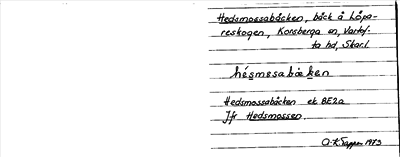 Hedsmossabäcken, bäck å Löpa-
reskogen, Korsberga sn, Vartof-
ta hd, Skar.l
hésmosabæken
Hedsmossabäcken ek BE2a
Jfr Hedsmossen.
1973